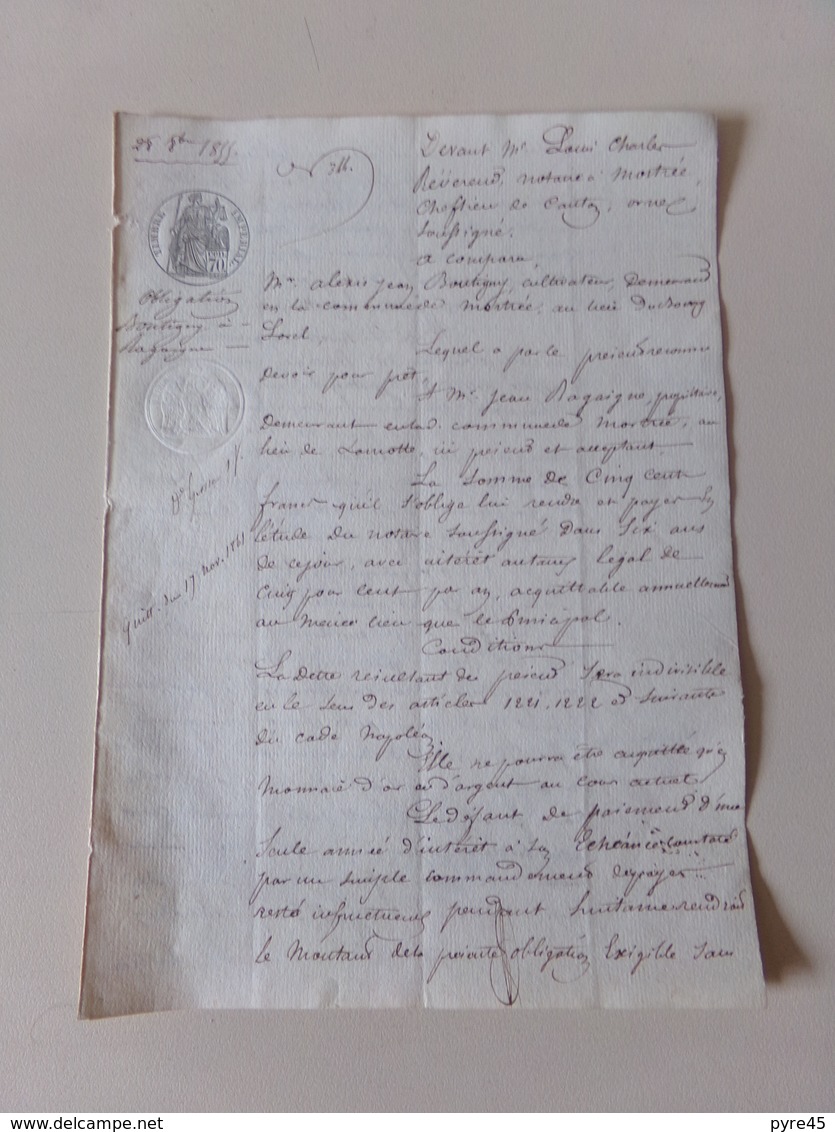 25 8bre 1855.
N 711.
TIMBRE IMPERIAL
70
Obligation
Boutigny à
Ragaigne
1re Grosse 1f.
quitt. du 17 nov. 1861
Devant Me Louis Charles
Révérend, notaire à Mortrée,
Chef lieu de Canton, orne,
Soussigné.
a comparu,
Mr alexis jean Boutigny, cultivateur, Demeurant
en la commune de Mortrée, au lieu Du Bourg
Lequel a par le présent reconnu
devoir pour prêt,
A Mr jean Ragaigne, propriétaire,
demeurant en lad. commune de Mortrée, au
lieu de Lamotte, ici présent et acceptant,
La Somme de Cinq Cents
francs qu'il s'oblige lui rendre et payer en
l'étude du notaire Soussigné Dans Six ans
de ce jour, avec intérêt au taux légal de
Cinq pour cent par an, acquittable annuellement
au même lieu que le principal.
Conditions
La Dette résultant des présentes Sera indivisible
en le Sens des articles 1221, 1222 et Suivants
du code Napoléon.
Elle ne pourra être acquittée qu'en
Monnaie d'or et d'argent au cours actuel.
Le défaut de paiement d'une
Seule année d'intérêt à Son Echéance constaté
par un Simple commandement de payer
resté infructueux pendant huitaine rendrait
le Montant de la présente obligation Exigible Sans
pyre45